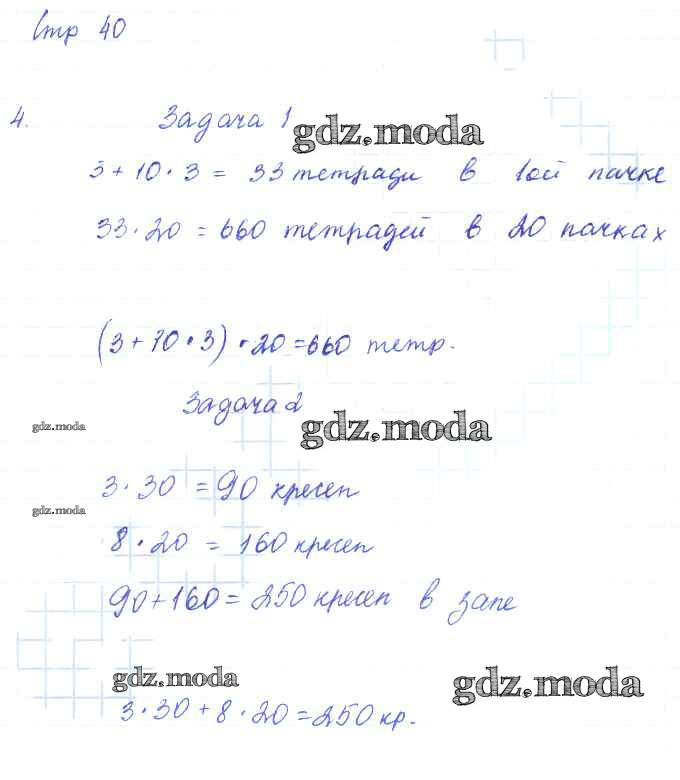 Стр 40
4. Задача 1
gdz.moda
3 + 10 · 3 = 33 тетради в 1ой пачке
33 · 20 = 660 тетрадей в 20 пачках
(3 + 10 · 3) · 20 = 660 тетр.
Задача 2
gdz.moda
gdz.moda
3 · 30 = 90 кресел
gdz.moda
8 · 20 = 160 кресел
90 + 160 = 250 кресел в зале
gdz.moda
gdz.moda
3 · 30 + 8 · 20 = 250 кр.